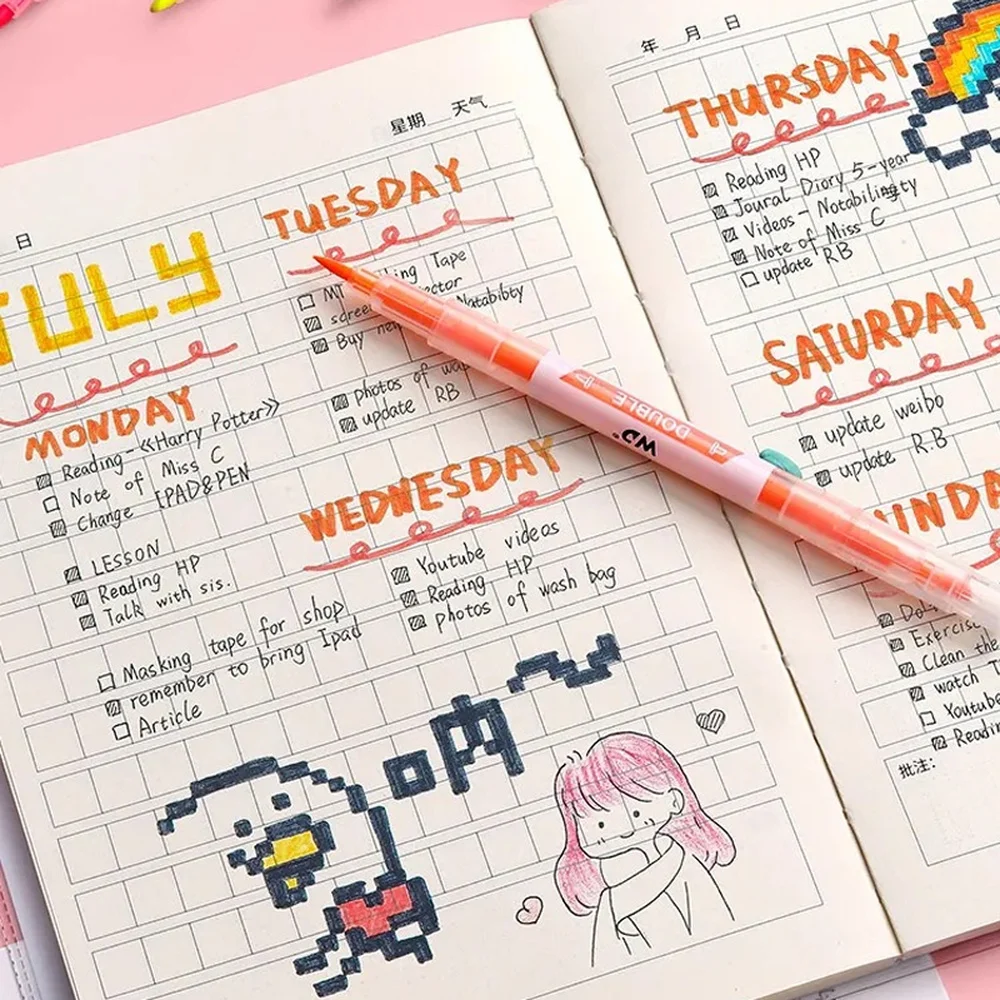 日
星期 天气
JULY
MONDAY
Reading-《Harry Potter》
Note of Miss C
Change IPAD&PEN
LESSON
Reading HP
Talk with sis.
Masking tape for shop
remember to bring Ipad
Article
TUESDAY
Tape
Buy
photos of
update RB
WEDNESDAY
Youtube videos
Reading HP
photos of wash bag
呐
DOUBLE
年 月 日
THURSDAY
Reading HP
Joural Diory 5-year
Videos-
Note of Miss C
update RB
SATURDAY
update weibo
update R.B
Clean the
watch
Youtube
批注: